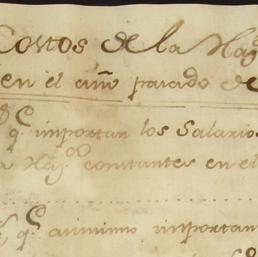 Costos de la Haz
en el año pasado de
q.e importan los Salarios
a Haz.da constantes en el
q.e asimismo importan